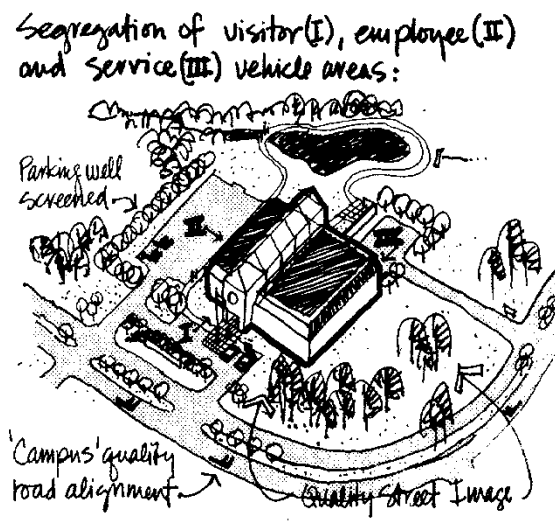 Segregation of visitor(I), employee(II)
and service(III) vehicle areas:
Parking well
screened
II
III
I
'Campus' quality
road alignment
Quality Street Image